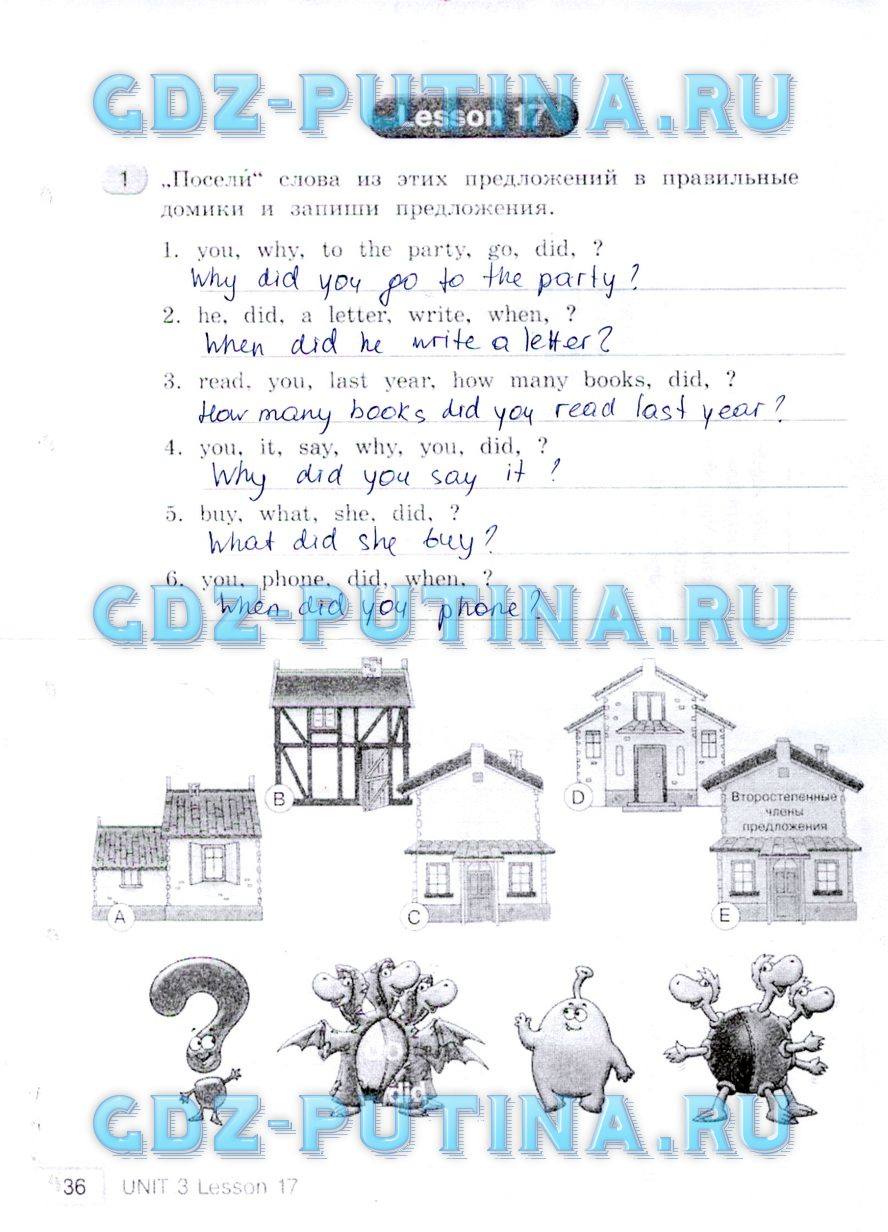 GDZ-PUTINA.RU
Lesson 17
1 „Посели́“ слова из этих предложений в правильные
домики и запиши предложения.
1. you, why, to the party, go, did, ?
Why did you go to the party?
2. he, did, a letter, write, when, ?
When did he write a letter?
3. read, you, last year, how many books, did, ?
How many books did you read last year?
4. you, it, say, why, you, did, ?
Why did you say it ?
5. buy, what, she, did, ?
What did she buy?
6. you, phone, did, when, ?
When did you phone?
GDZ-PUTINA.RU
B
D
Второстепенные
члены
предложения
A
C
E
do
did
GDZ-PUTINA.RU
36 UNIT 3 Lesson 17